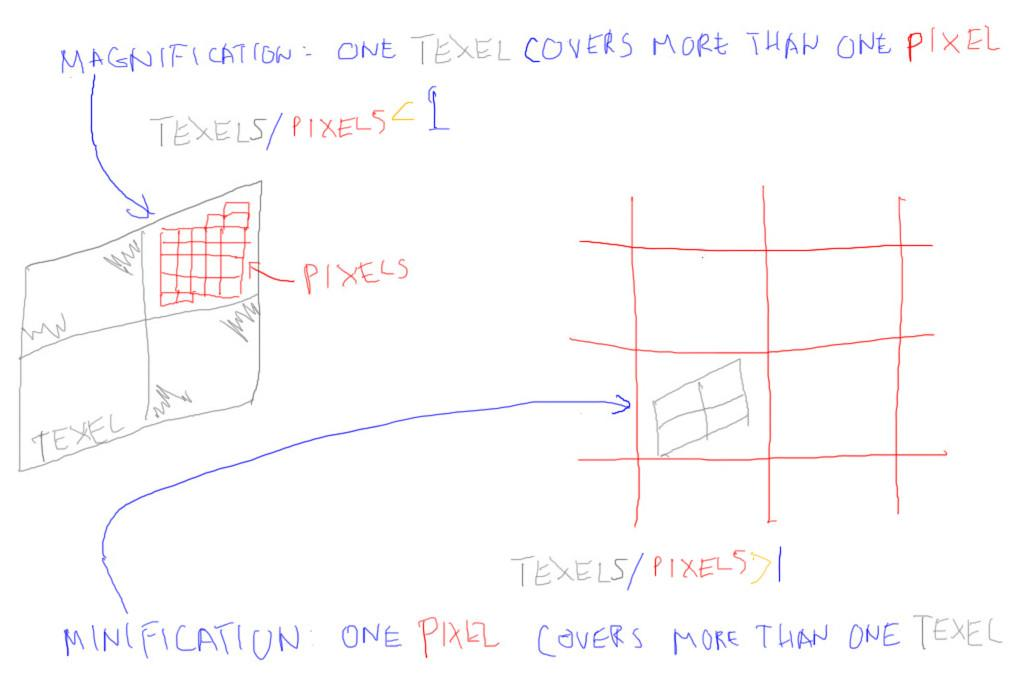 MAGNIFICATION: ONE TEXEL COVERS MORE THAN ONE PIXEL
TEXELS/PIXELS < 1
PIXELS
TEXEL
TEXELS/PIXELS > 1
MINIFICATION: ONE PIXEL COVERS MORE THAN ONE TEXEL